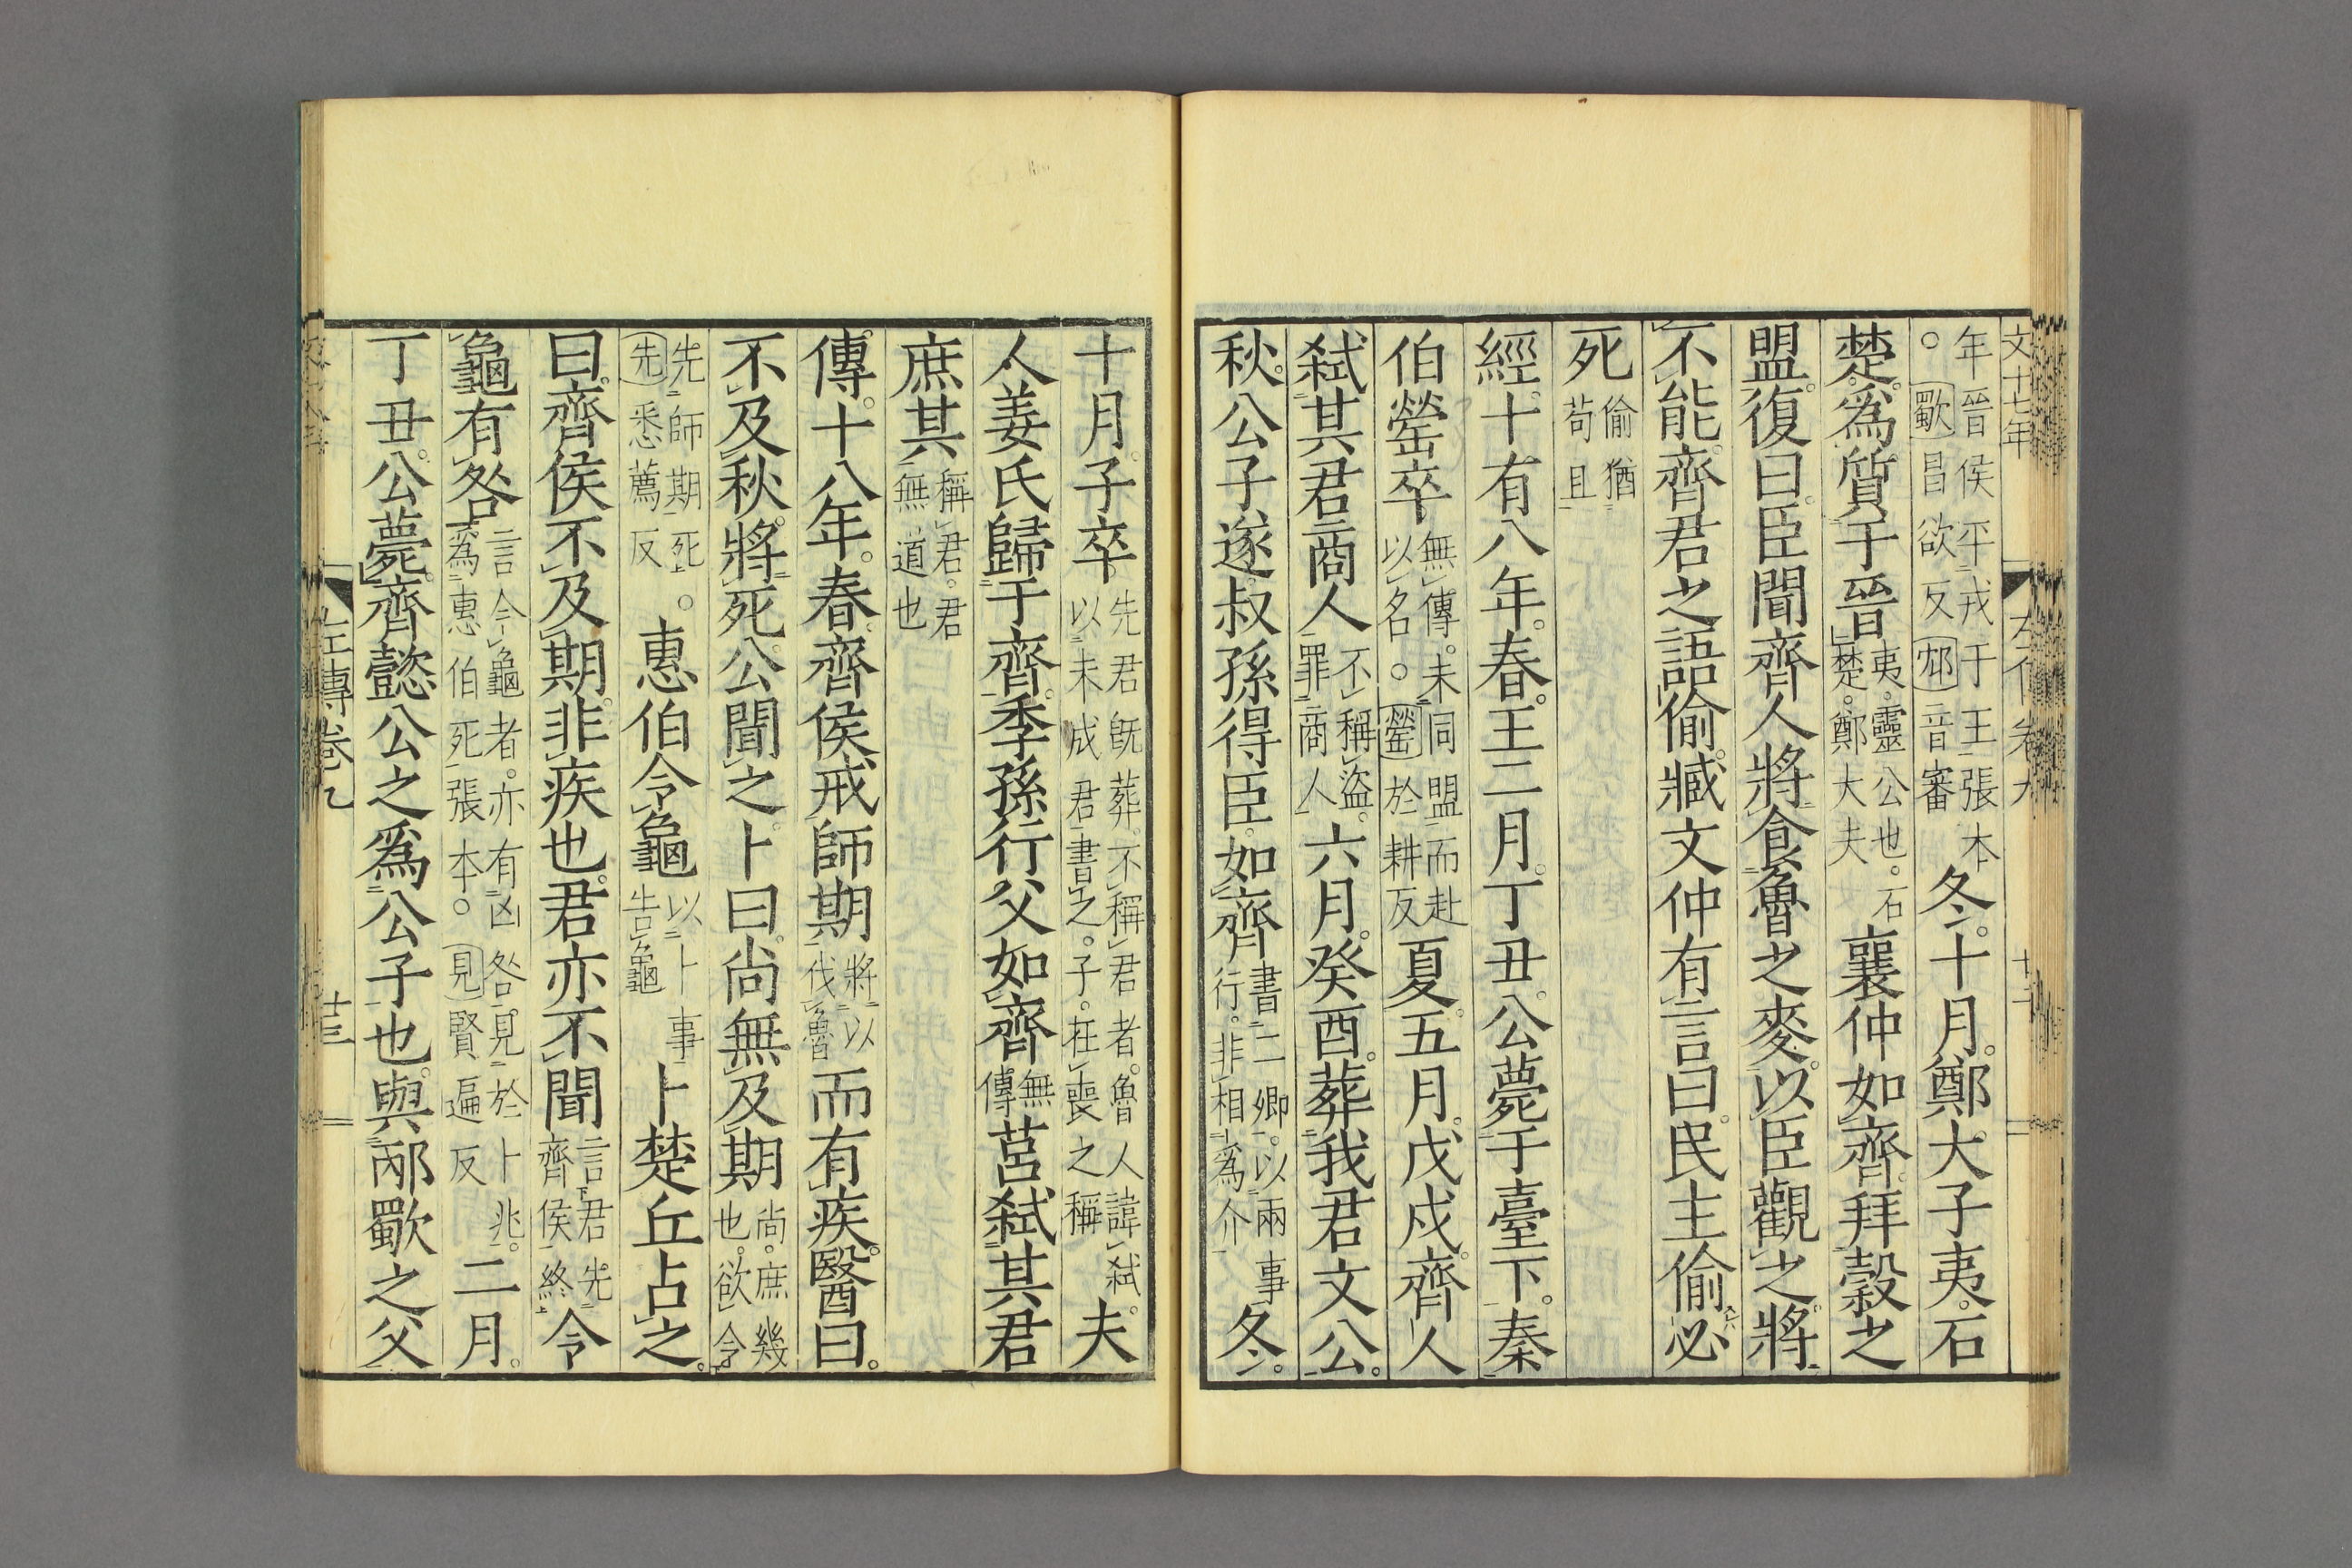 文十七年 左傳卷九 十二
年晉侯平戎于王張本
。歜昌欲反邥音審
冬。十月。鄭大子夷。石
楚。爲質于晉
夷。靈公也。石
楚。鄭大夫
襄仲如齊。拜穀之
盟。復曰。臣聞齊人將食魯之麥。以臣觀之。將
不能。齊君之語偷。臧文仲有言曰。民主偷必
死
偷猶
苟且
經。十有八年。春。王二月。丁丑。公薨于臺下。秦
伯罃卒
無傳。未同盟而赴
以名。。罃於耕反
夏。五月。戊戌。齊人
弑其君商人
不稱盜。
罪商人
六月。癸酉。葬我君文公。
秋。公子遂叔孫得臣。如齊
書二卿。以兩事
行。非相爲介
冬。
十月。子卒
先君既葬。不稱君者。魯人諱弑。
以未成君書之。子。在喪之稱
夫
人姜氏歸于齊。季孫行父如齊
無
傳
莒弑其君
庶其
稱君。君
無道也
傳。十八年。春。齊侯戒師期
將以
伐魯
而有疾。醫曰。
不及秋。將死。公聞之。卜曰。尚無及期
尚。庶幾
也。欲令
先師期死。
先悉薦反
。惠伯令龜
以卜事
告龜
卜楚丘占之。
曰。齊侯不及期。非疾也。君亦不聞
言君先
齊侯終
令
龜有咎
言令龜者。亦有凶咎。見於卜兆。
爲惠伯死張本。。見賢遍反
二月。
丁丑。公薨。齊懿公之爲公子也。與邴歜之父
左傳卷九 十三